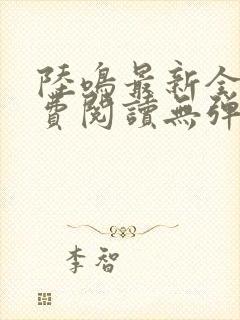 陸鳴最新全
費閱讀無彈
李智